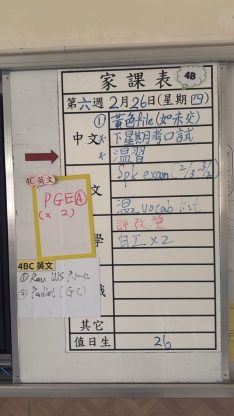 家課表 4B
第六週 2月26日(星期四)
① 黃色file(如未交)
中文 * 下星期考口試
* 溫習
Spk exam (2/3-3/3)
4C 英文
PGE④
(x 2)
文
溫 vocab list
改
學
自工 x 2
4BC 英文
① Rev. WS
②
其它
值日生 26